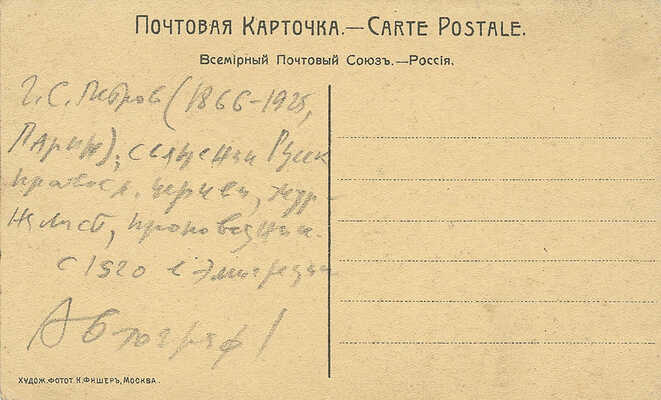 Почтовая Карточка.—Carte Postale.
Всемірный Почтовый Союзъ.—Россія.
Г. С. Петров (1866-1925,
Париж), священик Русск
правосл. церкви, жур-
налист, проповедник.
С 1920 в эмиграции
Автограф!
Худож. фотот. К. Фишеръ, Москва.